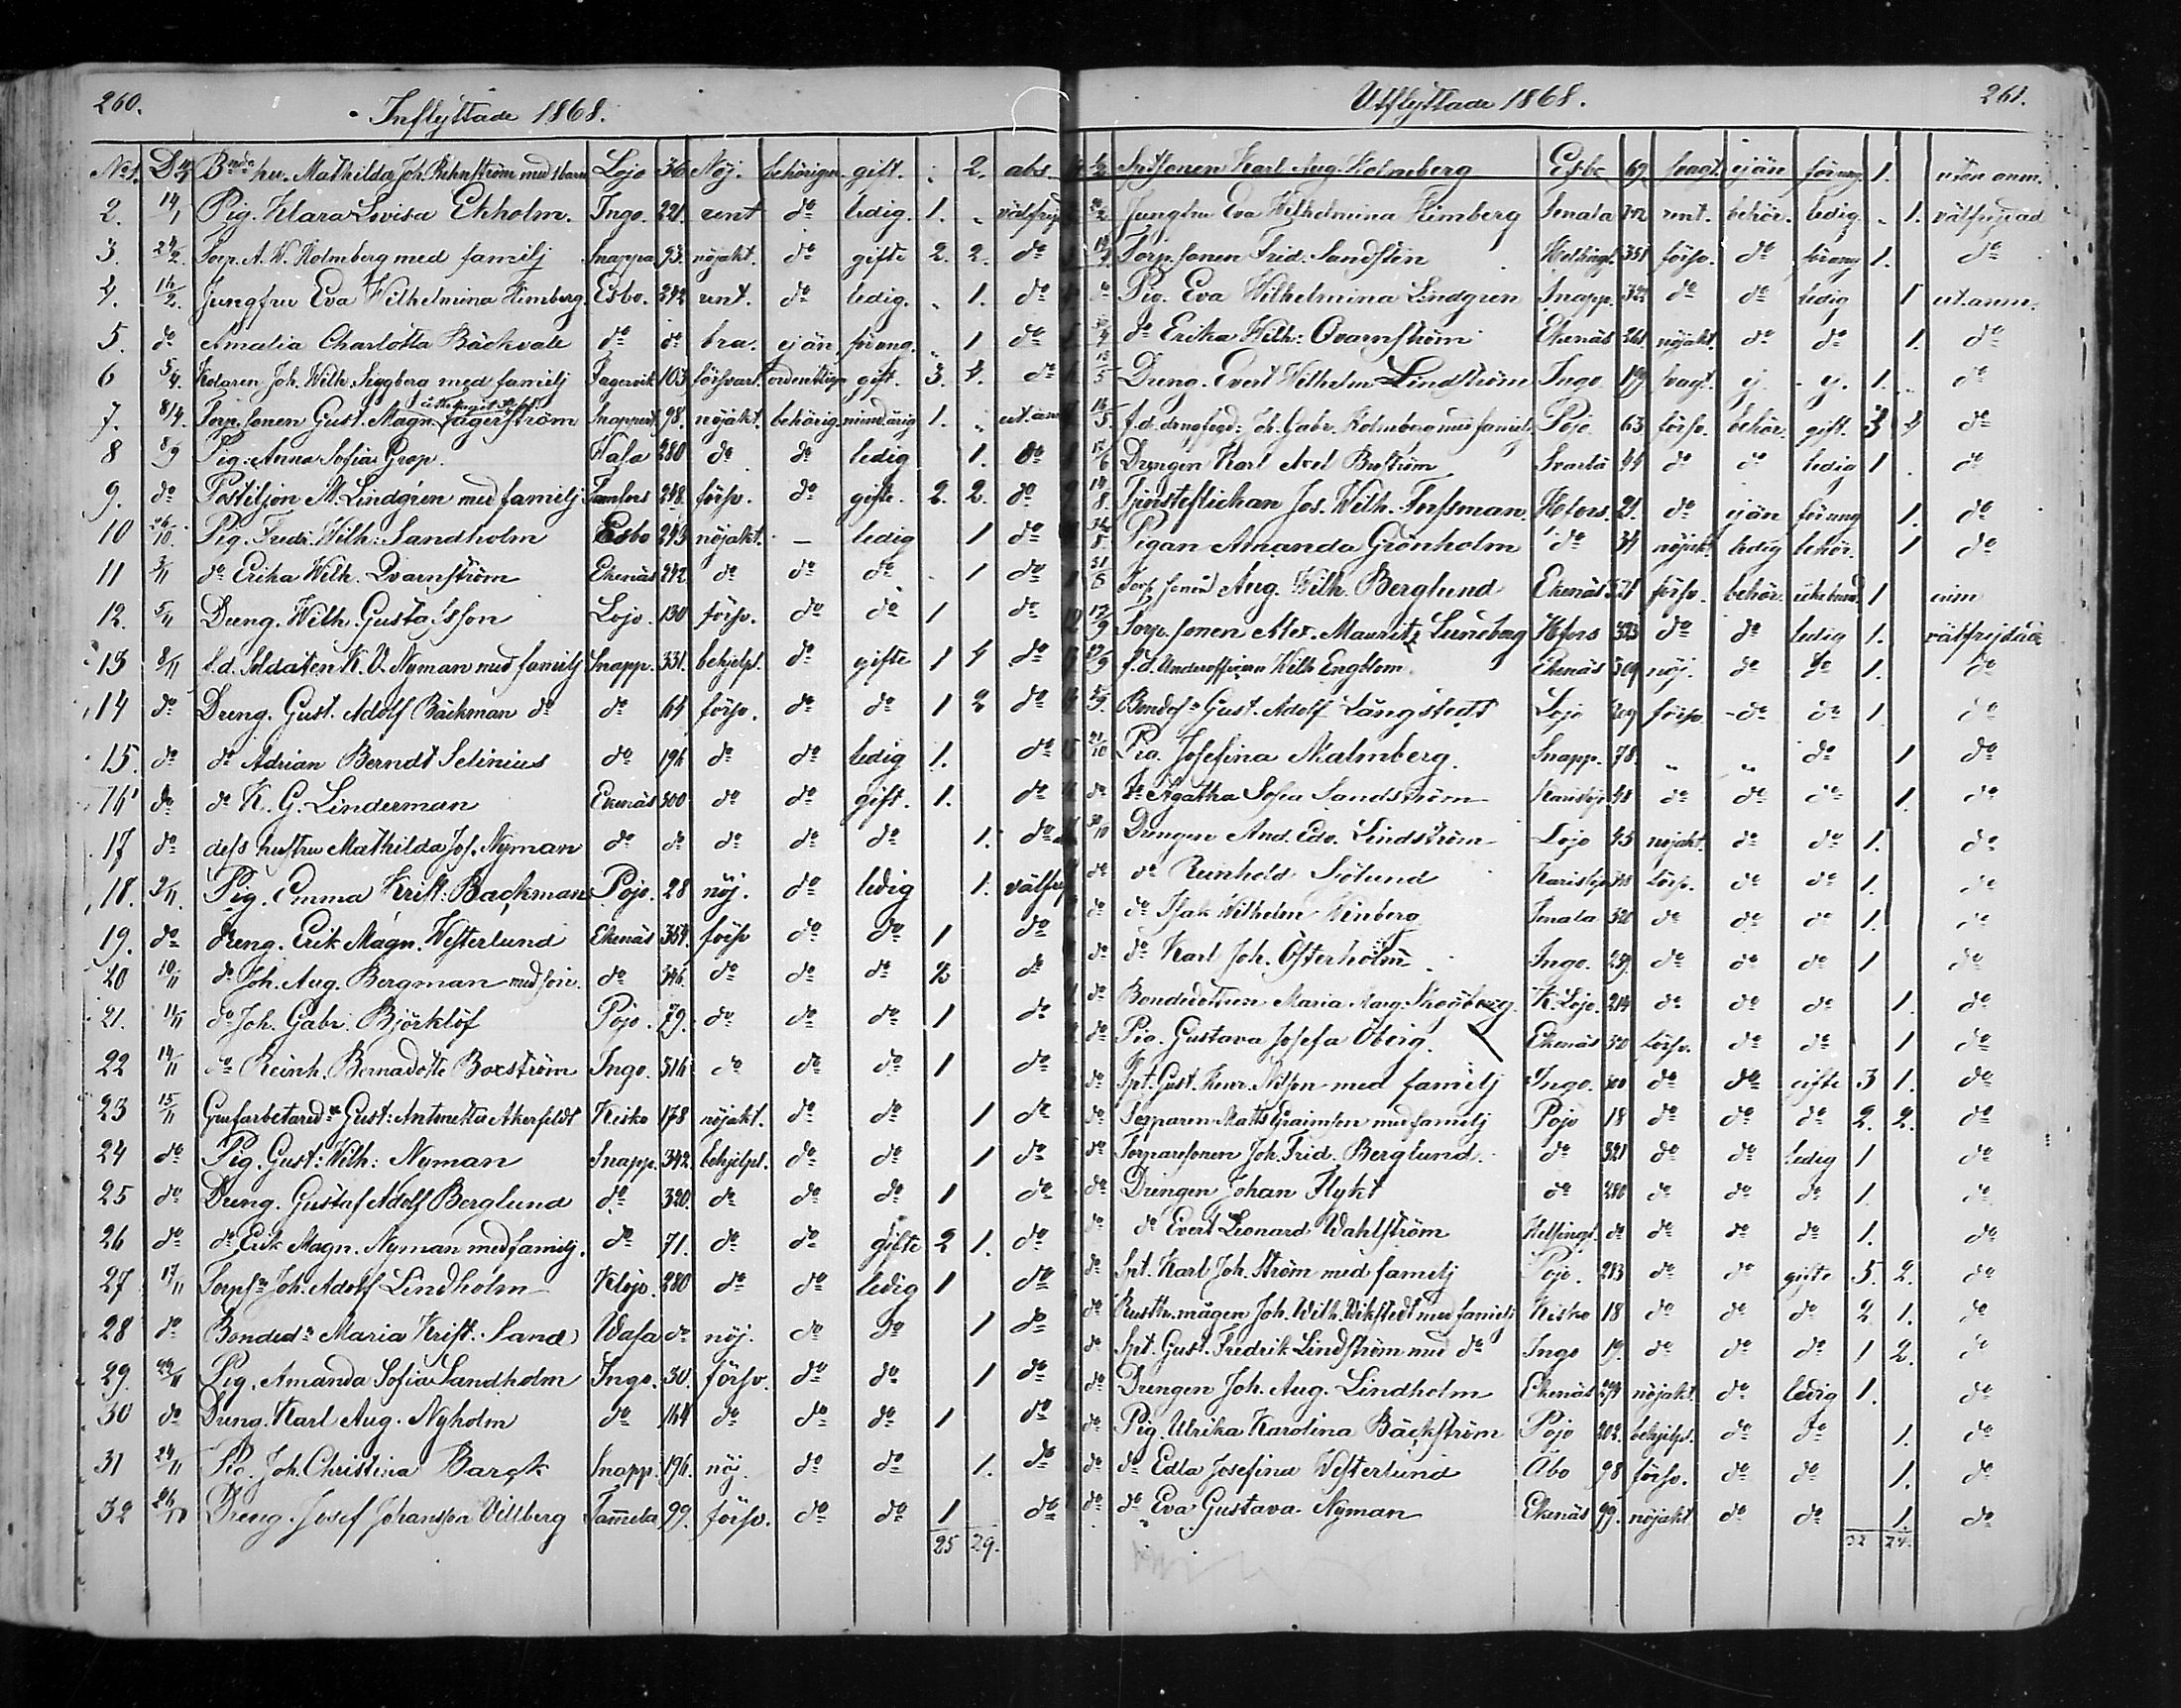 260.
Inflyttade 1868.
No 1. Bnde hu. Mathilda Joh. Rehnström med 1 barn Lojo 36 Nöj. behörigen gift. 2. abs.
2. 14/1 Pig. Klara Lovisa Ekholm. Ingo. 221. rent do ledig. 1. välfrejd
3. 24/2. Torp. A. W. Holmberg med familj Snappa 93. nöjakt. do gifte 2. 2. do
4. 16/2. Jungfru Eva Wilhelmina Kimberg. Esbo. 242 rent. do ledig. 1. do
5. do Amalia Charlotta Bäckvall do do bra. ej än förung. 1 do
6 5/4. Kolaren Joh. Wilh. Seggberg med familj Fagervik 103 försvarl. ordentligen gift. 3. 4. do
7. 8/4. Torp. sonen Gust. Magn. Jägerström Snappert. 98. nöjakt. behörig. minderårig 1. ut. anm
8 8/9 Pig. Anna Sofia Grop. Wasa 280 do do ledig 1. do
9. do Postiljon M. Lindgren med familj Tamfors 248. försv. do gifte. 2. 2. do
10 26/10. Pig. Fredr. Wilh: Sandholm Esbo 243 nöjakt. — ledig 1 do
11 3/11 do Erika Wilh. Qvarnström Ekenäs 242. do do do 1 do
12. 5/11 Dreng. Wilh. Gustafsson Lojo. 130 försv. do do 1 do
13 8/11 f.d. Soldaten K. V. Nyman med familj Snapp. 331. behjelpl. do gifte 1 4 do
14 do Dreng. Gust. Adolf Bäckman do do 64 försv. do do 1 2 do
15. do do Adrian Berndt Selinius do 196 do do ledig 1. do
16 do do K. G. Linderman Ekenäs 300 do do gift. 1. do
17 do dess hustru Mathilda Jos. Nyman do do do do do 1. do
18. 9/11. Pig. Emma Krist: Backman Pojo. 28 nöj. do ledig 1. välfrej
19. do dreng. Erik Magn. Westerlund Ekenäs 354. försv do do 1 do
20 10/11 do Joh. Aug. Bergman med son. do 346. do do do 2 do
21. 11/11 do Joh. Gabr. Björklöf Pojo. 79. do do do 1 do
22 14/11 do Reinh. Bernadotte Boxström Ingo. 516 do do do 1 do
23 15/11 Grufarbetared:r Gust: Antonetta Åkerfeldt Kisko 178 nöjakt. do do 1 do
24 do Pig. Gust: Wilh: Nyman Snapp. 342. behjelpl. do do 1 do
25 do Dreng. Gustaf Adolf Berglund do 320. do do do 1 do
26 do do Erik Magn. Nyman med familj. do 71. do do gifte 2 1. do
27 17/11 Torpsn Joh. Adolf Lindholm Klojo. 280 do do ledig 1 do
28 do Bonded:r Maria Krist. Sand Wasa do nöj. do do 1 do
29. 22/11 Pig. Amanda Sofia Sandholm Ingo. 30. försv. do do 1 do
30 do Dreng. Karl Aug. Nyholm do 164 do do do 1 do
31 24/11 Pig. Joh. Christina Barck Snapp. 196. nöj. do do 1. do
32 26/11 Dreng. Josef Johansson Villberg Tammela 99. försv. do do 1 do
25 29.
261.
Utflyttade 1868.
Sptsonen Karl Aug. Holmberg Esbo 69. svagt. ej än förung. 1. utan anm.
Jungfru Eva Wilhelmina Kimberg Tenala rent. behör. ledig. 1. välfrejdad
Torp. sonen Frid. Sandsten Helsing 351 försv. do förung 1. do
do Pig. Eva Wilhelmina Lindgren Snapp. 322 do do ledig 1 ut. anm.
do Erika Wilh: Qvarnström Ekenäs 261. nöjakt. do do 1. do
15/5 Dreng. Evert Wilhelm Lindström Ingo svagt. ej 1. do
f.d. drngfogd: Joh. Gabr. Holmberg med familj Pojo 63 försv. behör. gift. 3 4 do
15/6 Drengen Karl Axel Boström Svartå 44 do do ledig 1 do
19/8. Tjensteflickan Jos. Wilh. Forssman. Hfors. 21. do ej än förung 1. do
Pigan Amanda Grönholm do 34 nöjakt ledig behör. 1 do
31/8 Torp. sonen Aug. Wilh. Berglund Ekenäs försv. behör. 1
12/9 Torp. sonen Alex. Mauritz Lundberg Hfors 323 do do ledig 1. välfrejdad
f.d. Underofficeren Wilh Engblom Ekenäs 304 nöj. do do 1. do
Bondes:n Gust. Adolf Långstedt Lojo 209 försv. do do 1. do
21/10 Pig. Josefina Malmberg. Snapp. 78. do 1 do
do do Agatha Sofia Sandström Karislojo 48 do do do 1. do
30/10 Drengen And. Edv. Lindström Lojo 45 nöjakt. do do 1. do
do do Reinhold Sjölund Karislojo försv. do do 1. do
do do Isak Wilhelm Winberg Tenala 320 do do do 1. do
do do Karl Joh. Österholm Ingo. 239. do do do 1 do
do Bondedottren Maria Marg. Skogberg. K. Lojo. 214 do do do 1. do
do Pig. Gustava Josefa Öberg. Ekenäs 320 försv. do do 1 do
do Spt. Gust. Nilson med familj Ingo. 300 do do gifte 3 1. do
do Torparen Matts Grainsen med familj Pojo 18 do do do 2. 2. do
do Torparesonen Joh. Frid. Berglund do 321 do do ledig 1 do
do Drengen Johan Flykt do 280 do do do 1. do
do do Evert Leonard Wahlström Helsinge. do do do do 1. do
do Spt. Karl Joh. Ström med familj Pojo. 213 do do gifte 5. 2. do
do Rusth. mågen Joh. Wilh. Wikstedt med familj Kisko 18 do do do 2. 1. do
do Spt. Gust. Fredrik Lindström med do Ingo 19. do do do 1 2. do
do Drengen Joh. Aug. Lindholm Ekenäs 279 nöjakt. do ledig 1. do
do Pig. Ulrika Karolina Bäckström Pojo 202. behjelpl. do do 1. do
do do Edla Josefina Westerlund Åbo 98 försv. do do 1. do
do do Eva Gustava Nyman Ekenäs 99. nöjakt do do 1. do
32 24.